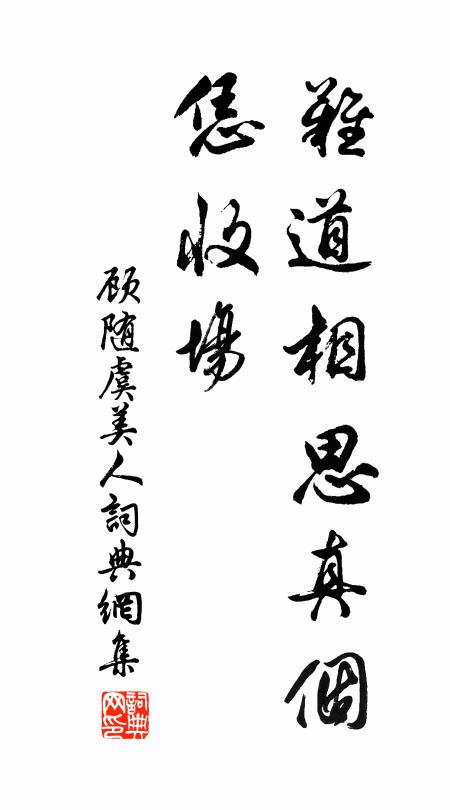 難道相思真個
恁收場
顾随虞美人詞典網集
詞典
网印